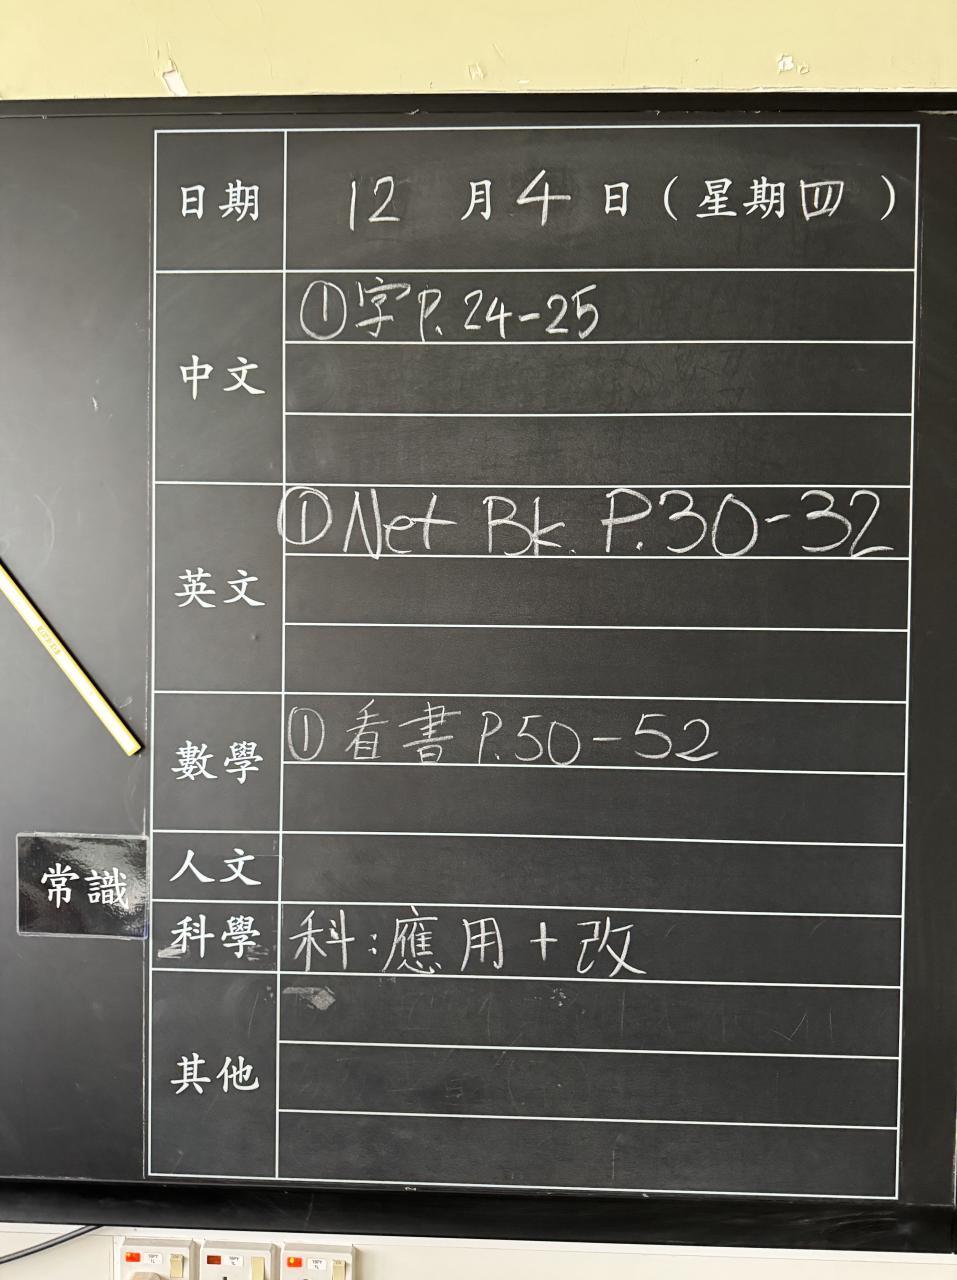 日期 12 月 4 日（星期四）
中文 ①字P.24-25
英文 ①Net Bk. P.30-32
數學 ①看書P.50-52
人文
常識
科學 科:應用+改
其他